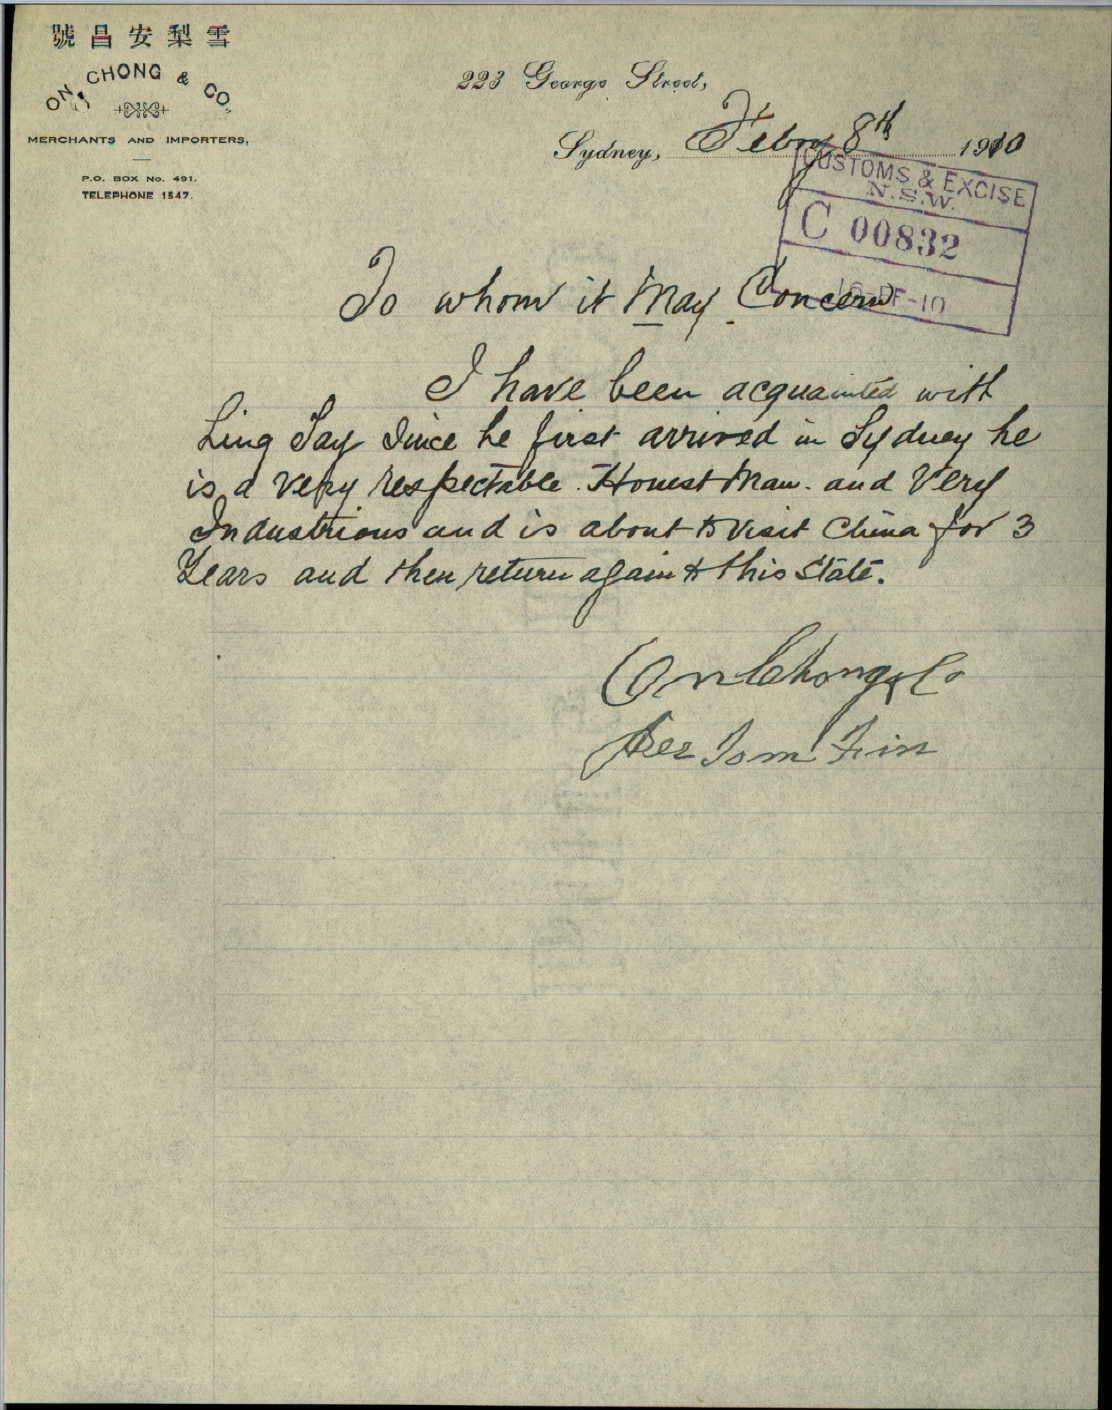 號昌安梨雪
ON CHONG & CO.
MERCHANTS AND IMPORTERS,
P.O. BOX No. 491.
TELEPHONE 1547.
223 George Street,
Sydney, Febry 8th 1910
CUSTOMS & EXCISE
N.S.W.
C 00832
-10
To whom it May Concern
I have been acquainted with
Ling Say Since he first arrived in Sydney he
is a very respectable. Honest Man. and Very
Industrious and is about to visit China for 3
Years and then return again to this State.
On Chong & Co
Per Tom Finn